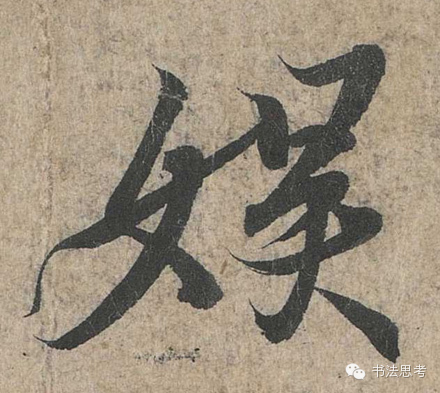 娛
书法思考